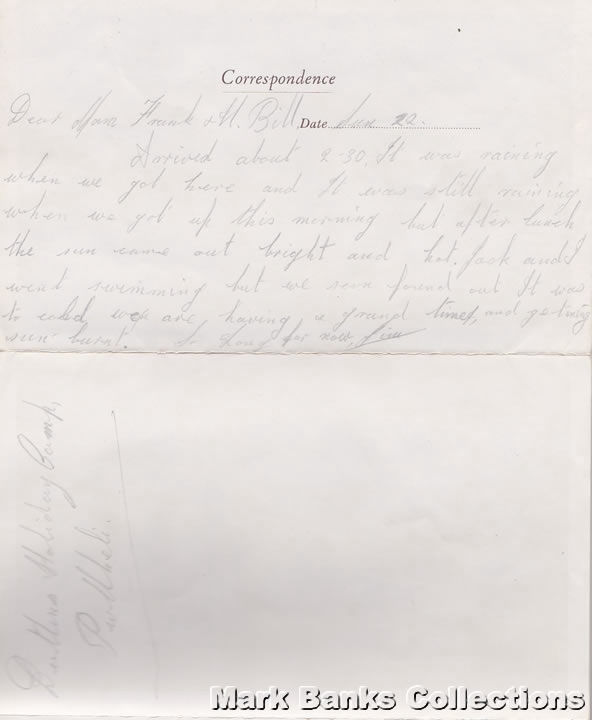 Correspondence
Dear Mom Frank & M. Bill, Date Sun 22.
Arrived about 2-30. It was raining
when we got here and It was still raining
when we got up this morning but after lunch
the sun came out bright and hot. Jack and I
went swimming but we soon found out It was
to cold we are having a grand time, and getting
sun burnt. So Long for now, Jim
Butlins Holiday Camp,
Pwllheli.
Mark Banks Collections